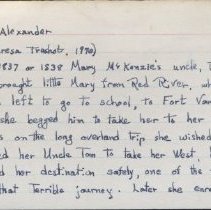 Alexander
resa Trashot, 1970)
1837 or 1838 Mary McKenzie's uncle, T
rought little Mary from Red River, wh
s left to go to school, to Fort Van
she begged him to take her to her
s on the long overland trip she wished
ed her Uncle Tom to take her West,
ed her destination safely, one of the
that Terrible journey. Later she